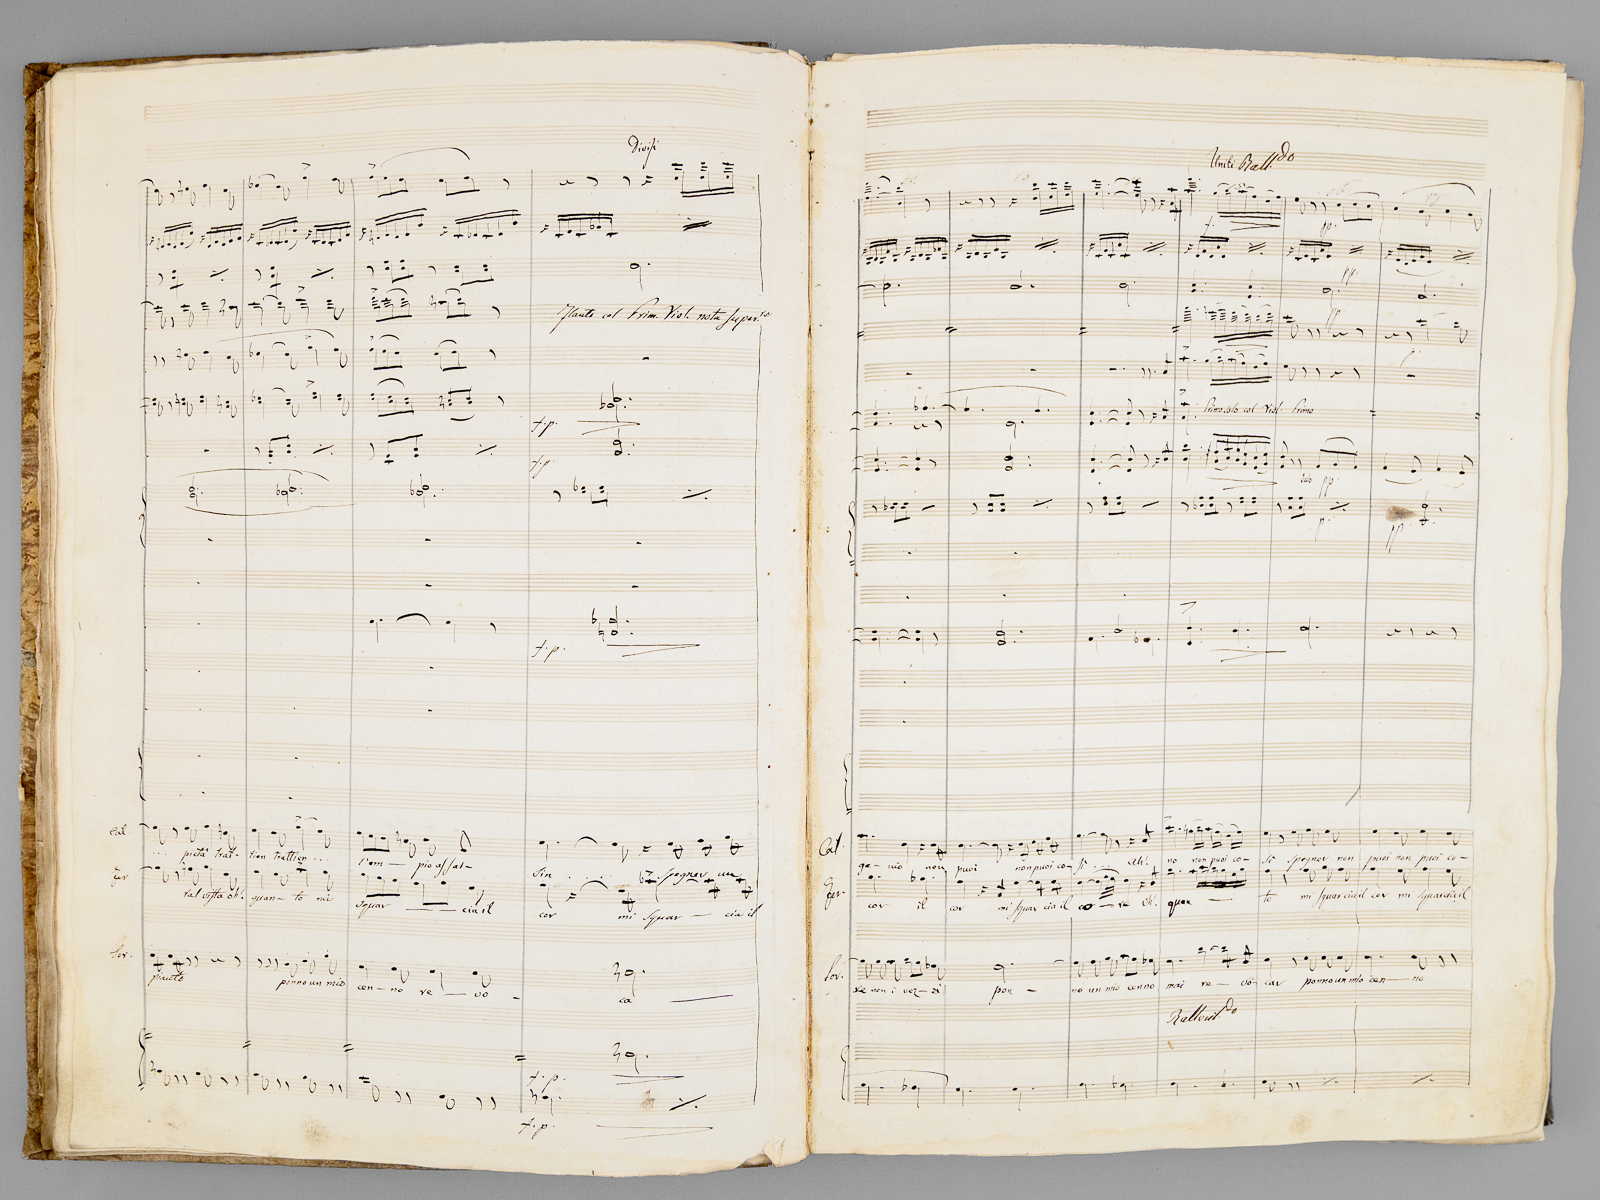 Divisi
Flauto col Prim. Viol. nota super.re
f. p.
f. p.
f. p.
Cal.
pietà trat- tien trattien l'em - pio assas- sin . . . spegner un
Ger.
tal vista oh! quan - to mi squar - cia il cor mi squar - cia il
Sor.
punto ponno un mio cen - no re - vo - ca
f. p.
f. p.
Uniti Rall.do
f.
pp.
pp.
Primo solo col Viol. Primo
solo pp.
p.
pp.
Cal.
ge - nio non puoi non puoi co - sì . . . Ah! no non puoi co - sì spegner non puoi non puoi co -
Ger.
cor il cor mi squar cia il co - re oh! quan - to mi squarcia il cor mi squarcia il
Sor.
re non i vez - zi pon - no un mio cenno mai re - vo car ponno un mio cen - no
Rallent.do